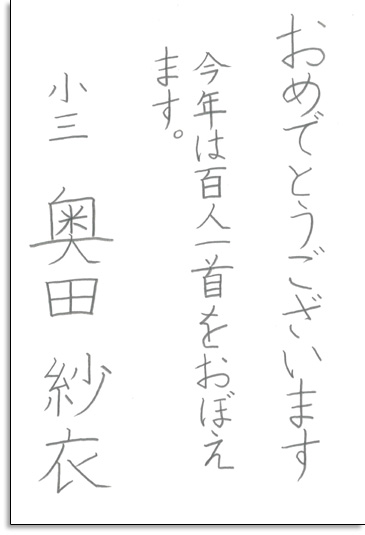 おめでとうございます
今年は百人一首をおぼえ
ます。
小三 奥田 紗衣